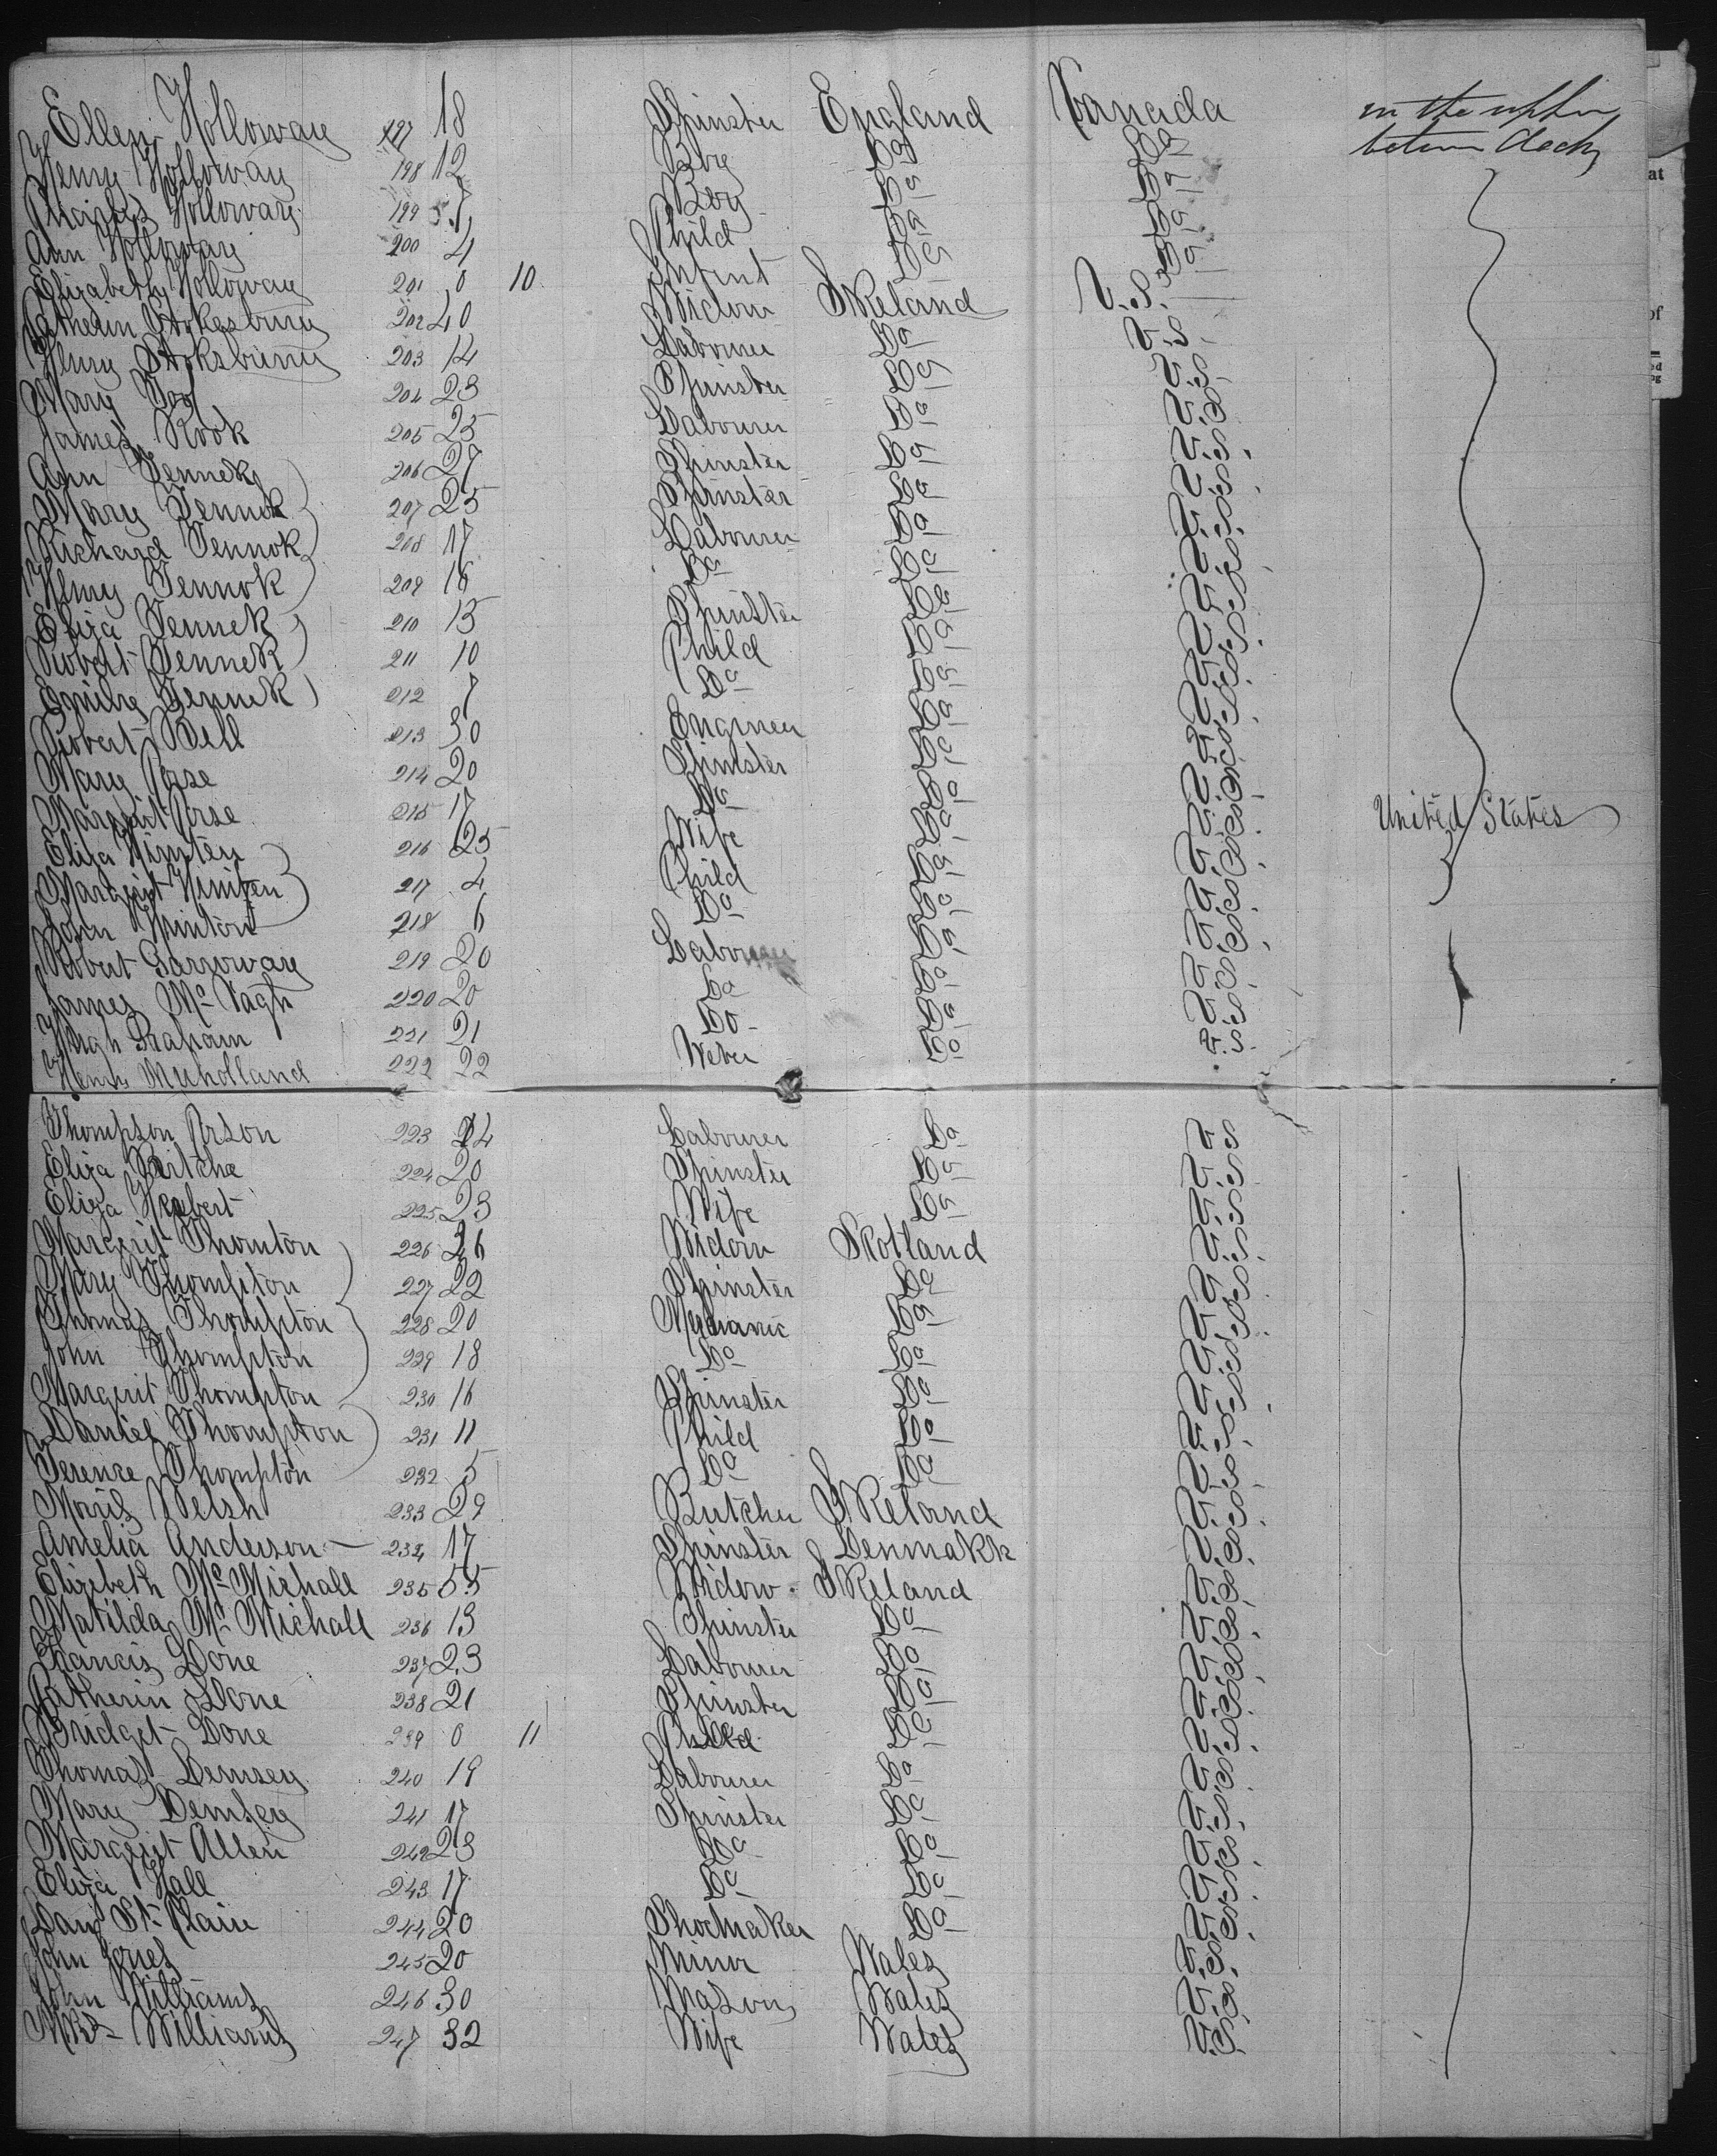 Ellen Holloway 197 18 Spinster England Canada in the upper
Henry Holloway 198 12 Boy Do Do between decks
Charles Holloway 199 7 Boy Do Do
Ann Holloway 200 4 Child Do Do
Elizabeth Holloway 201 0 10 Infant Do Do
Catherin Stokesbury 202 40 Widow IReland U.S.
Henry Stoksbury 203 14 Labourer Do U.S.
Mary 204 23 Spinster Do U.S.
James Rook 205 25 Labourer Do U.S.
Ann Jennek 206 27 Spinster Do U.S.
Mary Jennok 207 25 Spinster Do U.S.
Richard Jennok 208 17 Labourer Do U.S.
Henry Jennok 209 16 Do Do U.S.
Eliza Jennek 210 15 Spinster Do U.S.
Robert Jennek 211 10 Child Do U.S.
Emily Jennek 212 7 Do Do U.S.
Robert Bell 213 30 Engineer Do U.S.
Mary Orse 214 20 Spinster Do U.S.
Margerit Orse 215 17 Do Do U.S. United States
Eliza Hinten 216 25 Wife Do U.S.
Margerit Hinten 217 4 Child Do U.S.
John Hinton 218 6 Do Do U.S.
Robert Garroway 219 20 Labourer Do U.S.
James Mc Vagh 220 20 Do Do U.S.
Hugh Graham 221 21 Do Do U.S.
Henry Muholland 222 22 Weber Do U.S.
Thompson Orson 223 24 Labourer Do U.S.
Eliza Ritche 224 20 Spinster Do U.S.
Eliza Herbert 225 23 Wife Do U.S.
Margerit Thomton 226 26 Widow Skotland U.S.
Mary Thompton 227 22 Spinster Do U.S.
Thomas Thompton 228 20 Mechanic Do U.S.
John Thompton 229 18 Do Do U.S.
Margerit Thompton 230 16 Spinster Do U.S.
Daniel Thompton 231 11 Child Do U.S.
Terence Thompton 232 5 Do Do U.S.
Moris Welsh 233 29 Butcher IReland U.S.
Amelia Anderson 234 17 Spinster Denmakk U.S.
Elizebeth Mc Michall 235 55 Widow IReland U.S.
Matilda Mc Michall 236 13 Spinster Do U.S.
Francis Done 237 23 Labourer Do U.S.
Catherin Done 238 21 Spinster Do U.S.
Bridget Done 239 0 11 Child Do U.S.
Thomas Demsey 240 19 Labourer Do U.S.
Mary Demsey 241 17 Spinster Do U.S.
Margerit Allen 242 23 Do Do U.S.
Eliza Hall 243 17 Do Do U.S.
Dan St Claire 244 20 Shoemaker Do U.S.
John Jones 245 20 Minor Wales U.S.
John Williams 246 30 Mason Wales U.S.
MRs Williams 247 32 Wife Wales U.S.